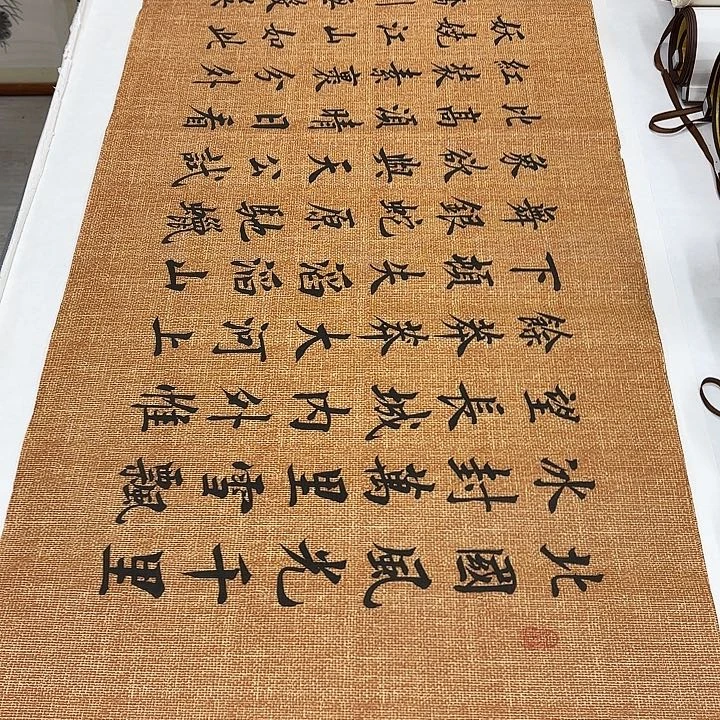 北國風光千里
冰封萬里雪飄
望長城內外惟
餘莽莽大河上
下頓失滔滔山
舞銀蛇原馳蠟
象欲與天公試
比高須晴日看
紅裝素裹分外
妖嬈江山如此